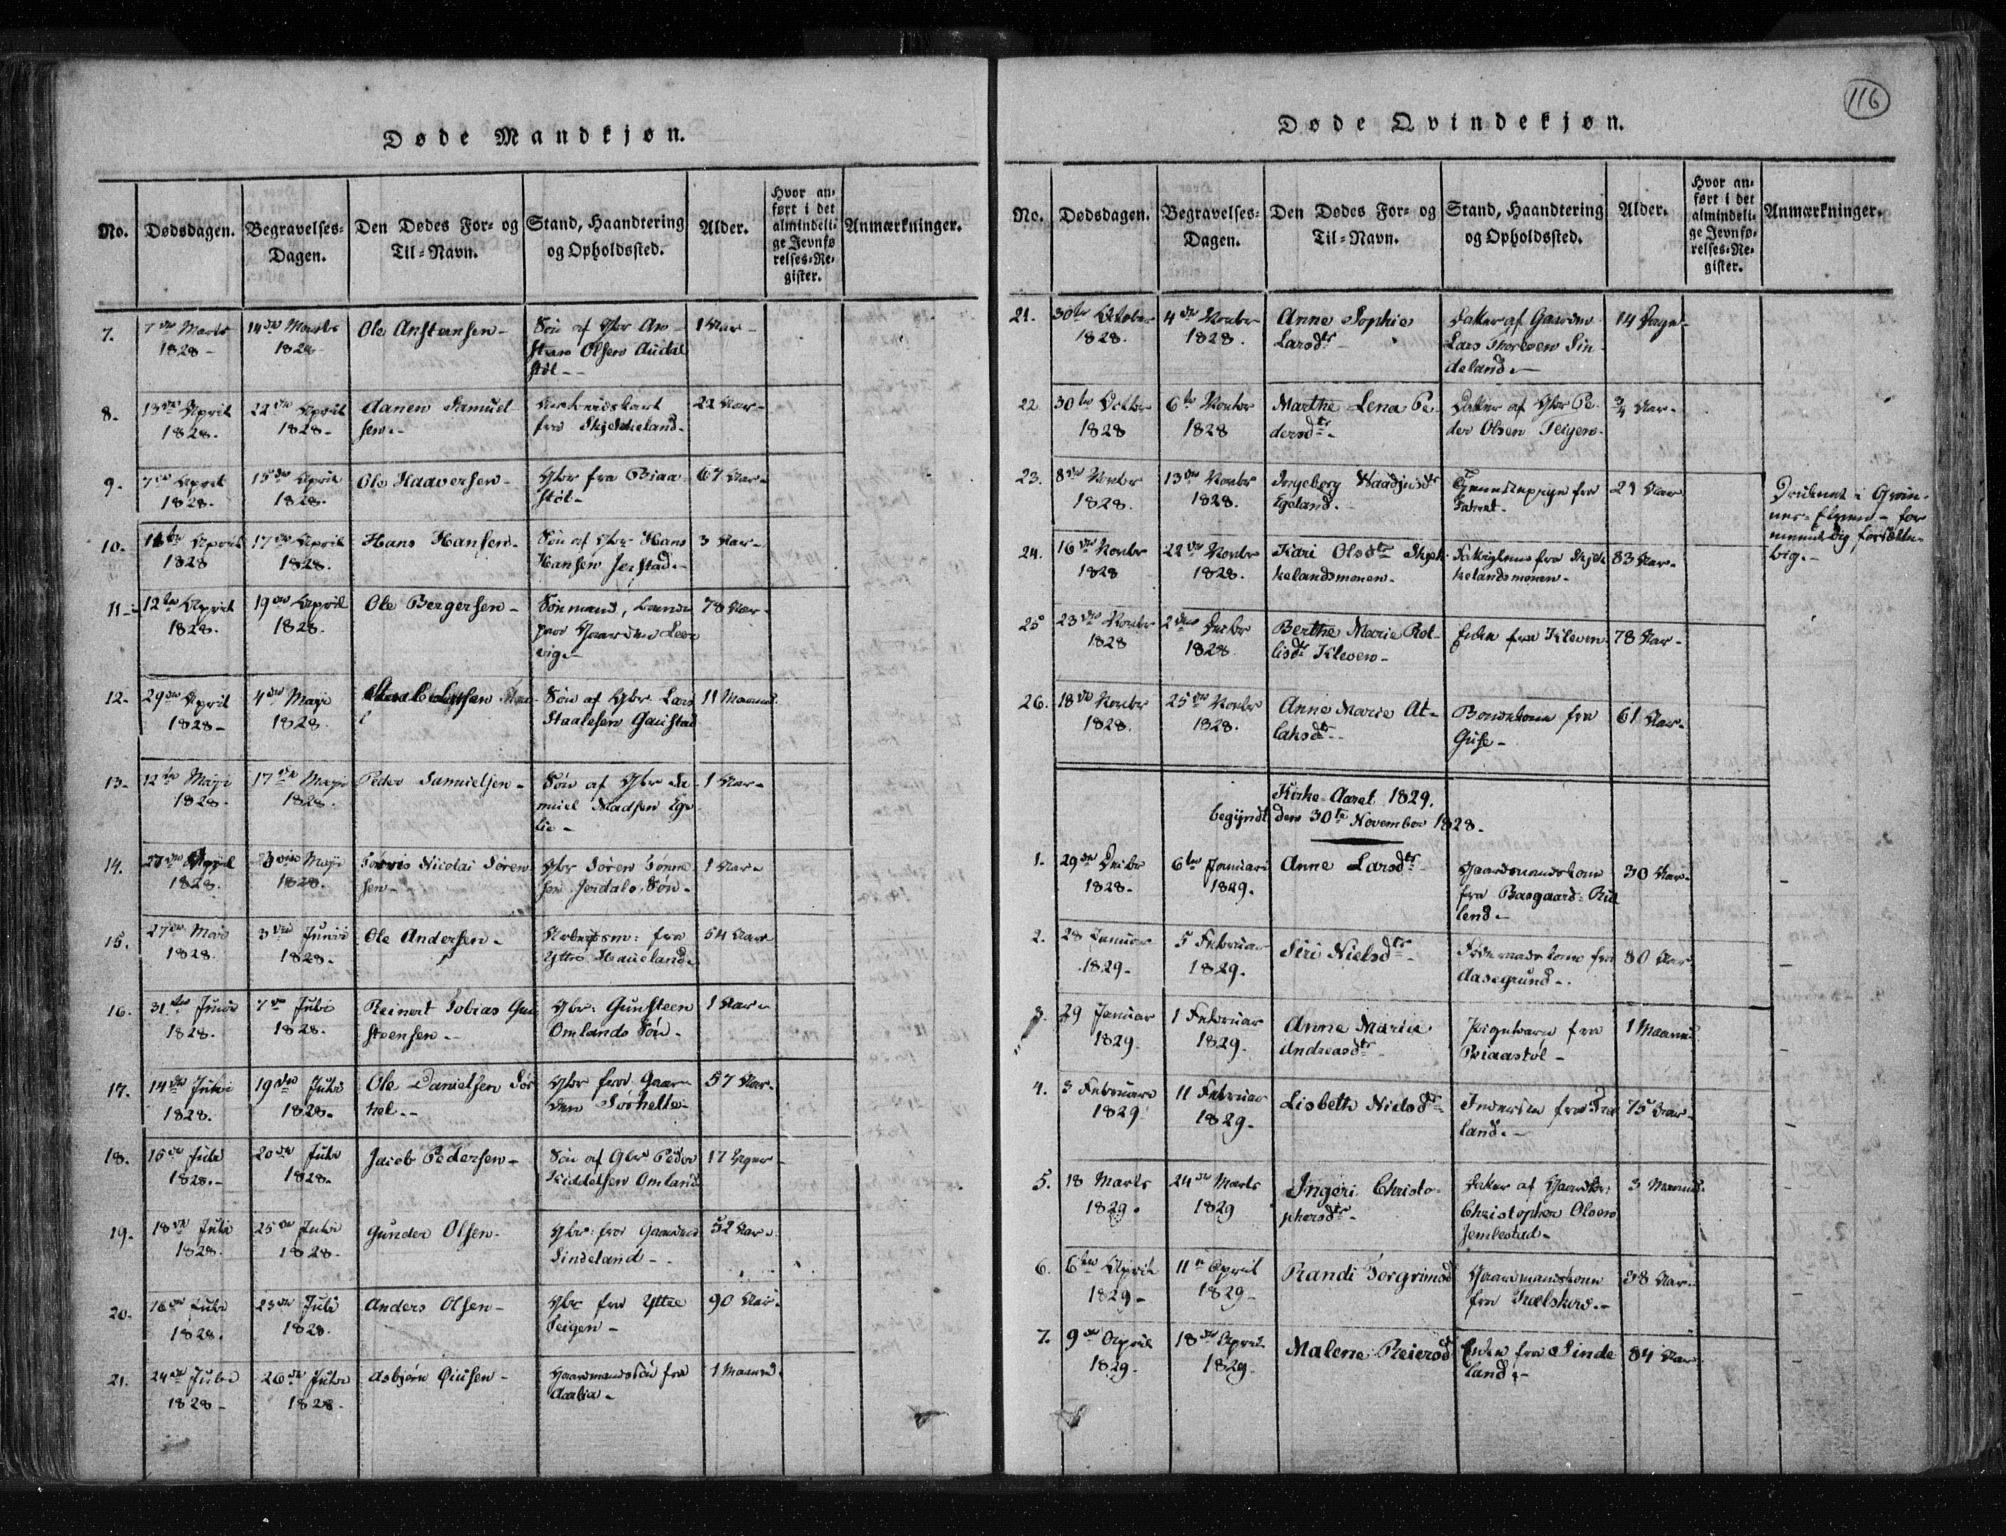 116
Døde Mandkjøn.
No.
Dødsdagen.
Begravelses-
Dagen.
Den Dødes For- og
Til-Navn.
Stand, Haandtering
og Opholdssted.
Alder.
Hvor an-
ført i det
almindeli-
ge Jevnfø
relses-Re-
gister.
Anmærkninger.
7.
7de Marts
1828-
14de Marts
1828
Ole Anstensen-
Søn af Gbr An-
sten Olsen Audal
støl-
1 Aar-
8.
13de April
1828.
22de April
1828-
Aanen Samuel
sen.-
fra Skjekeland-
22 Aar-
9.
7de April
1828.
15de April
1828.
Ole Haaversen-
Gbr fra Biaa
støl-
67 Aar-
10.
11te April
1828
17de April
1828.
Hans Hansen.
Søn af Gbr Hans
Hansen Jerstad.-
3 Aar-
11.
12te April
1828.
19de April
1828.
Ole Bergersen-
paa Gaarden Leer
vig.-
78 Aar-
12.
29de April
1828-
4de Maji
1828
Søn af Gbr Lars
Staalesen Gaustad
11 Maaned.
13.
12te Maji
1828.
17de Maji
1828.
Peder Samuelsen-
Søn af Gbr Sa
muel Madsen Ege
lie-
1 Aar-
14.
27de April
1828.
Maji
1828.
Nicolai Søren
sen-
Gbr Søren Tønne
sen Jerdals Søn-
1 Aar-
15.
27de Mai
1828.
3die Junii
1828-
Ole Andersen-
Arbeidsm: fra
Yttre Haueland-
54 Aar-
16.
31te Junii
1828.
7de Juli
1828.
Reinert Tobias Gun
steensen.-
Gbr: Gunsteen
Omlands Søn-
1 Aar-
17.
14de Juli
1828.
19de Juli
1828.
Ole Danielsen Sør
hel.-
Gbr fra Gaar-
den Sørhelle-
57 Aar-
18.
16de Juli
1828.-
20de Juli
1828-
Jacob Pedersen-
Søn af Gbr Peder
Kiddelsen Omland
17 Uger-
19.
18de Juli
1828.
25de Juli
1828.
Gunder Olsen.
Gbr: fra Gaarden
Sindeland-
52 Aar-
20.
16de Juli
1828.
23de Juli
1828.
Anders Olsen-
Gbr fra Yttre
Teigen-
90 Aar-
21.
24de Juli
1828-
26de Juli
1828.
Asbjørn Qiusen-
Gaardmandssøn fra
1 Maaned.
Døde Qvindekjøn.
No.
Dødsdagen.
Begravelses-
Dagen.
Den Dødes For- og
Til-Navn.
Stand, Haandtering
og Opholdssted.
Alder.
Hvor an-
ført i det
almindeli-
ge Jevnfø-
relses-Re-
gister.
Anmærkninger.
21.
30te October
1828.
4de Novbr
1828.
Anne Sophie
Larsdtr
Datter af Gaardm
Lars Thoresen Sin-
deland.-
14 Dage-
22
30te Octbr
1828
6te Novbr
1828
Marthe Lena Pe-
dersdtr-
Datter af Gbr Pe-
der Olsen Teigen-
3/4 Aar-
23.
8de Novbr
1828.
13de Novbr
1828.
Ingeborg
Egeland.-
Tjenestepige fra
29 Aar
Druknet i Qvin-
nes-Elven- for
mentlig forsætte-
lig.-
24.
16de Novbr
1828
22de Novbr
1828.
Kari Olsdtr Skjek
kelandsmonen.
fra Skjek
kelandsmonen-
83 Aar-
25
23de Novbr
1828
2den Decbr
1828.
Berthe Marie Rol-
lisdtr Kleven-
Enken fra Kleven
78 Aar-
26.
18de Novbr
1828.
25de Novbr
1828.
Anne Marie At-
laksdtr-
Bondekone fra
61 Aar-
Kirke-Aaret 1829.
begyndt den 30te November 1828.
1.
29de Decbr
1828.
6te Januari
1829.
Anne Larsdtr-
Gaardmandskone
fra Basgaard-Rid
lend.-
30 Aar-
2.
28 Januar
1829-
5 Februar
1829.
Siri Nielsdtr-
fra
Aasegrund-.
80 Aar
3.
29 Januar
1829-
1 Februar
1829.
Anne Marie
Andreasdtr-
Pigebarn fra
Biaastøl-
1 Maaned
4.
3 Februari
1829.
11 Februar
1829-
Lisbeth Nielsdtr-
land.-
75 Aar-
5.
18 Marts
1829.
24de Marts
1829
Ingeri Christo-
phersdtr-
Datter af Gaardbr:
Christopher Olsen
Jemlestad-
3 Maaned.
6.
6te April
1829-
11te April
1829-
Randi Torgrimsd
Gaardmandskone
fra Trælskaar.-
38 Aar-
7.
9de April
1829.
18de April
1829-
Malene Reiersd
Enken fra Sinde
land.-
84 Aar